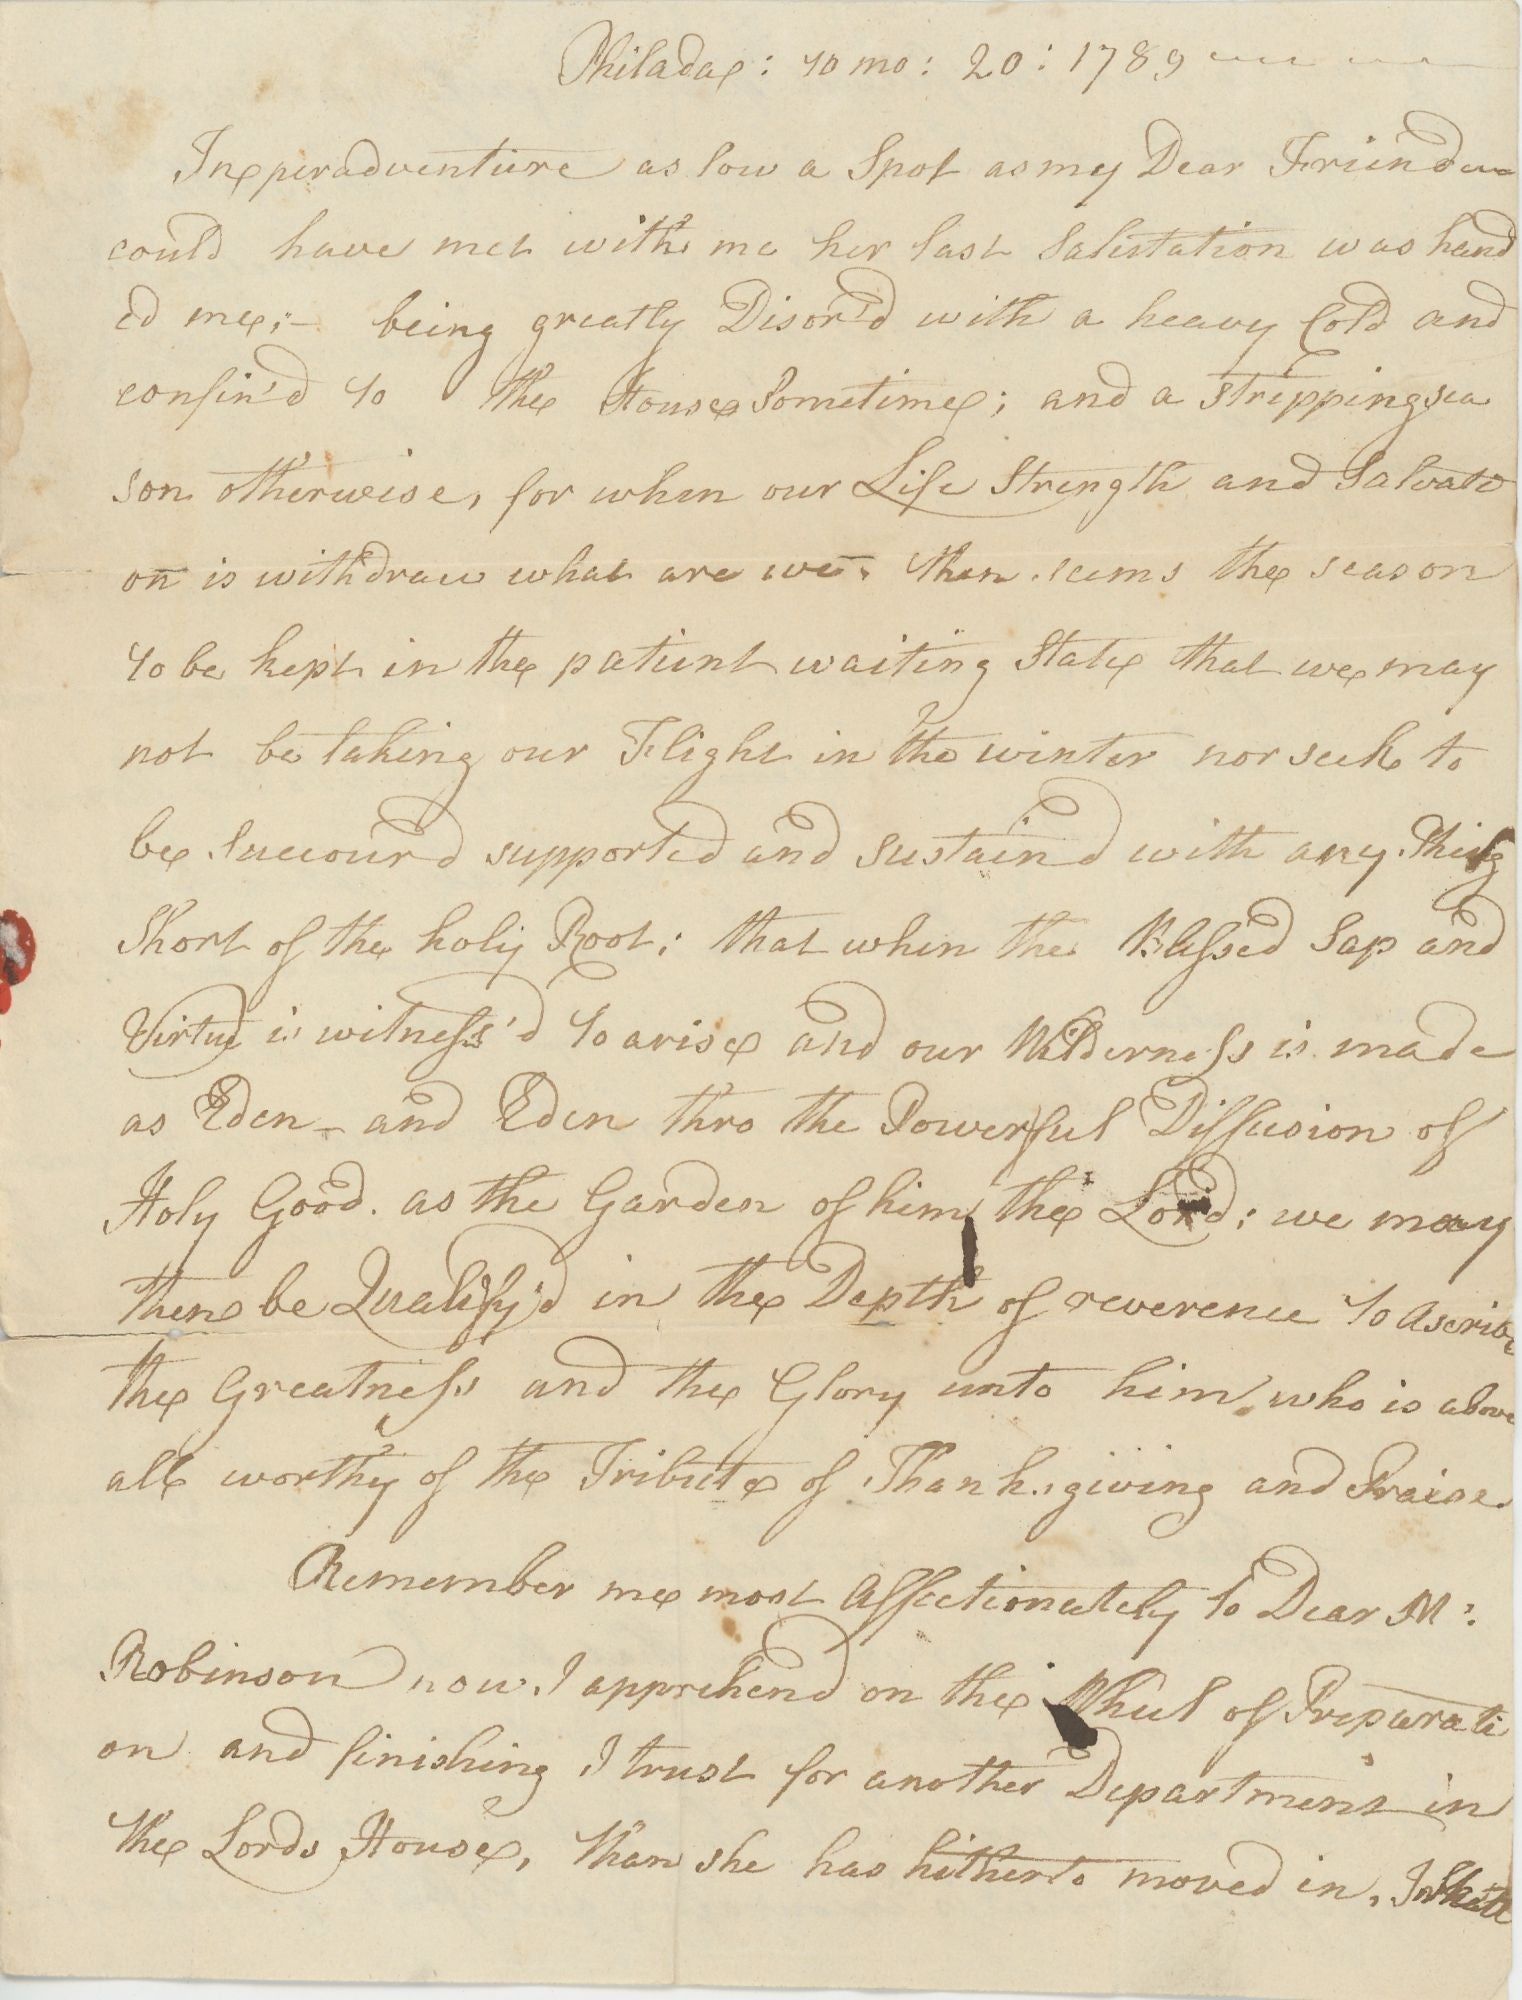 Philada: 10 mo: 20: 1789
In peradventure as low a Spot as my Dear Friend
could have met with me her last Salutation was hand
ed me;- being greatly Disor'd with a heavy Cold and
confin'd to the House Sometime; and a stripping sea
son otherwise, for when our Life Strength and Salvati
on is withdraw what are we. then seems the season
to be kept in the patient waiting State that we may
not be taking our Flight in the winter nor seek to
be Succour'd supported and sustain'd with any Thing
Short of the holy Root; that when the Blessed Sap and
Virtue is witness'd to arise and our Wilderness is made
as Eden - and Eden thro the Powerful Diffusion of
Holy Good. as the Garden of him the Lord; we may
then be Qualify'd in the Depth of reverence to ascribe
the Greatness and the Glory unto him who is above
all worthy of the Tribute of Thanksgiving and Praise.
Remember me most Affectionately to Dear M:
Robinson now I apprehend on the Wheel of Preparati
on and finishing I trust for another Department in
the Lords House, than she has hitherto moved in, I